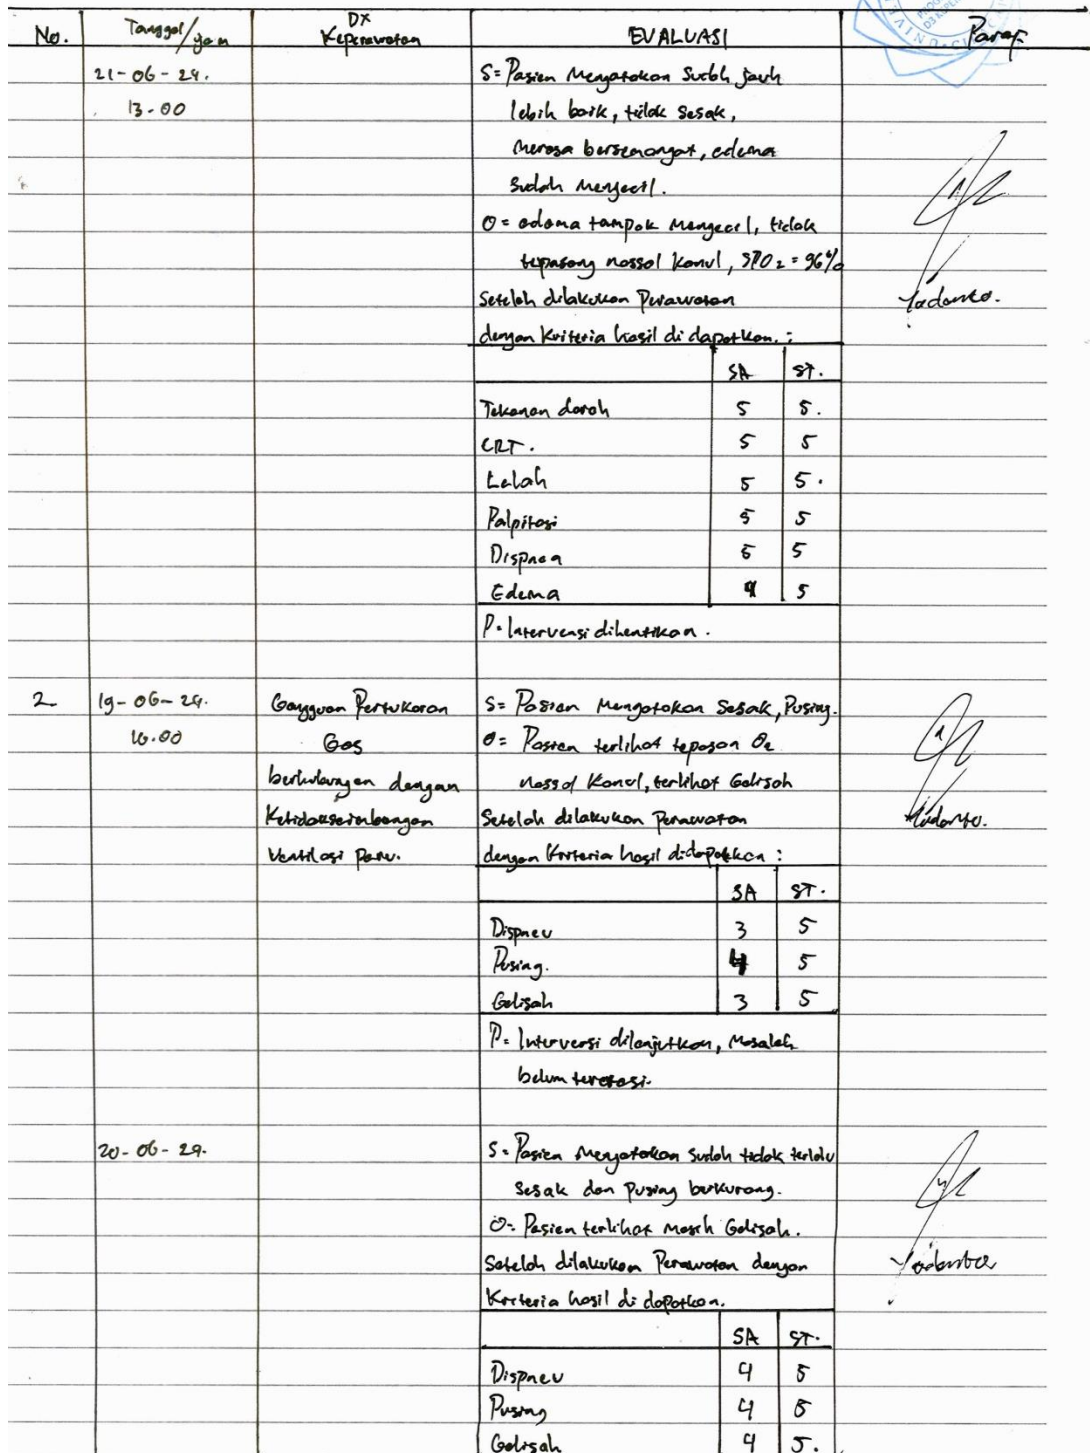 No. Tanggal/jam DX Keperawatan EVALUASI Paraf
21-06-24. S= Pasien Mengatakan Sudah jauh
13.00 lebih baik, tidak sesak,
merasa bersemangat, edema
sudah mengecil.
O= edema tampak mengecil, tidak
tepasang nassal kanul, SPO2 = 96%
Setelah dilakukan Perawatan Yadanto.
dengan Kriteria hasil di dapatkan. :
SA ST.
Tekanan darah 5 5.
CRT. 5 5
Lelah 5 5.
Palpitasi 5 5
Dispnea 5 5
Edema 4 5
P= Intervensi dihentikan.
2 19-06-24. Gangguan Pertukaran S= Pasien Mengatakan Sesak, Pusing.
16.00 Gas O= Pasien terlihat tepasan O2
berhubungan dengan nassal Kanul, terlihat Gelisah
Ketidakseimbangan Setelah dilakukan Perawatan Yadanto.
Ventilasi Paru. dengan Kriteria hasil didapatkan :
SA ST.
Dispneu 3 5
Pusing. 4 5
Gelisah 3 5
P= Intervensi dilanjutkan, Masalah
belum teratasi.
20-06-24. S= Pasien Mengatakan sudah tidak terlalu
sesak dan pusing berkurang.
O= Pasien terlihat masih Gelisah.
Setelah dilakukan Perawatan dengan Yadanto
Kriteria hasil di dapatkan.
SA ST.
Dispneu 4 5
Pusing 4 5
Gelisah 4 5.